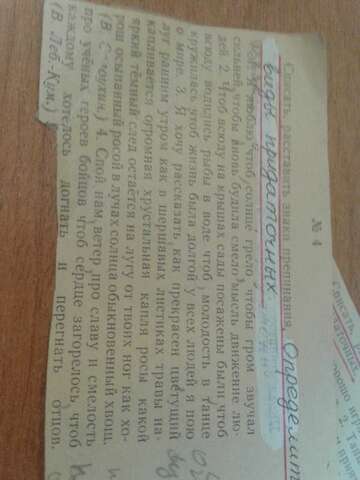 № 4
Списать, расставить знаки препинания. Определит
виды придаточных.
люблю чтоб солнце грело чтобы гром звучал
сильней чтобы вновь будила смело мысль движение лю-
дей. 2. Чтоб всюду на крышах сады посажены были чтоб
всюду водились рыбы в воде чтоб молодость в танце
кружилась чтоб жизнь была долгой у всех людей я пою
о мире. 3. Я хочу рассказать как прекрасен цветущий
луг ранним утром как в шершавых листиках травы на-
капливается огромная хрустальная капля росы какой
яркий тёмный след остаётся на лугу от твоих ног как хо-
рош осыпанный росой в лучах солнца обыкновенный хвощ.
(В. С 4. Спой нам, ветер, про славу и смелость
про учёных героев бойцов чтоб сердце загорелось чтоб
каждому хотелось догнать и перегнать отцов.
(В. Леб.-Кум.)